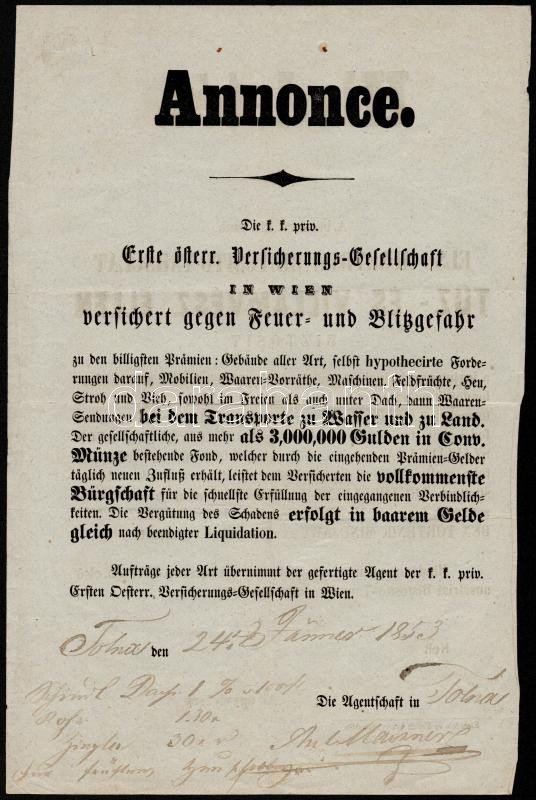 Annonce.
Die k. k. priv.
Erste österr. Versicherungs-Gesellschaft
IN WIEN
versichert gegen Feuer- und Blitzgefahr
zu den billigsten Prämien: Gebäude aller Art, selbst hypothecirte Forde-
rungen darauf, Mobilien, Waaren-Vorräthe, Maschinen, Feldfrüchte, Heu,
Stroh und Vieh, sowohl im Freien als auch unter Dach, dann Waaren-
Sendungen bei dem Transporte zu Wasser und zu Land.
Der gesellschaftliche, aus mehr als 3,000,000 Gulden in Conv.
Münze bestehende Fond, welcher durch die eingehenden Prämien-Gelder
täglich neuen Zufluß erhält, leistet dem Versicherten die vollkommenste
Bürgschaft für die schnellste Erfüllung der eingegangenen Verbindlich-
keiten. Die Vergütung des Schadens erfolgt in baarem Gelde
gleich nach beendigter Liquidation.
Aufträge jeder Art übernimmt der gefertigte Agent der k. k. priv.
Ersten Oesterr. Versicherungs-Gesellschaft in Wien.
Tolna den 24t Jänner 1853
Die Agentschaft in Tolna